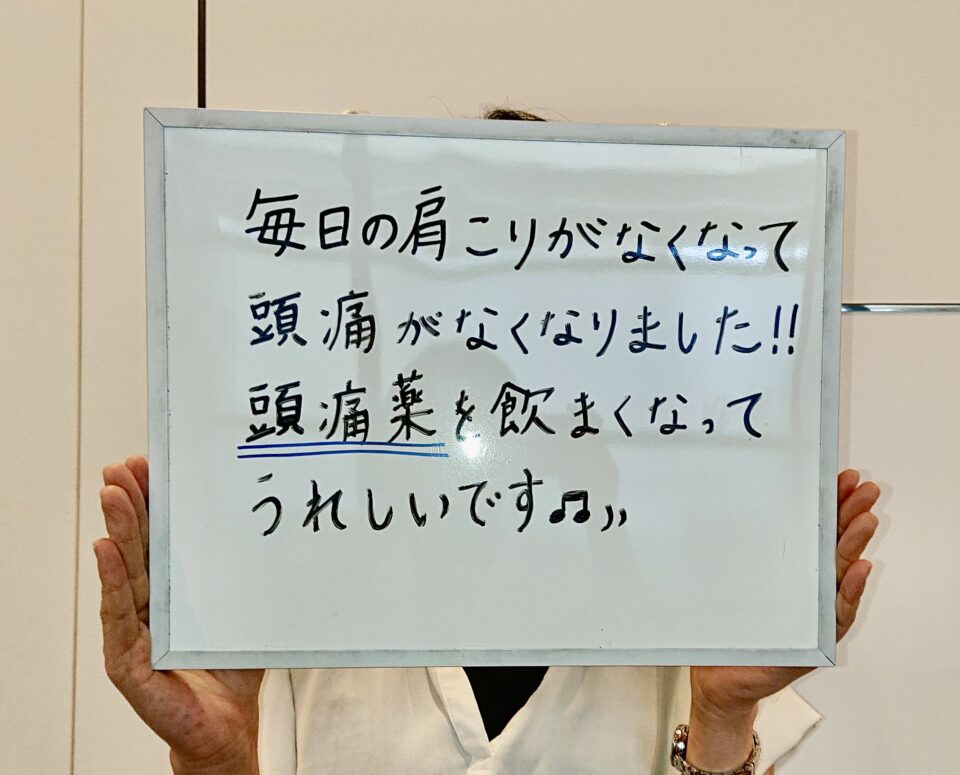 毎日の肩こりがなくなって
頭痛がなくなりました!!
頭痛薬を飲まくなって
うれしいです♫〃